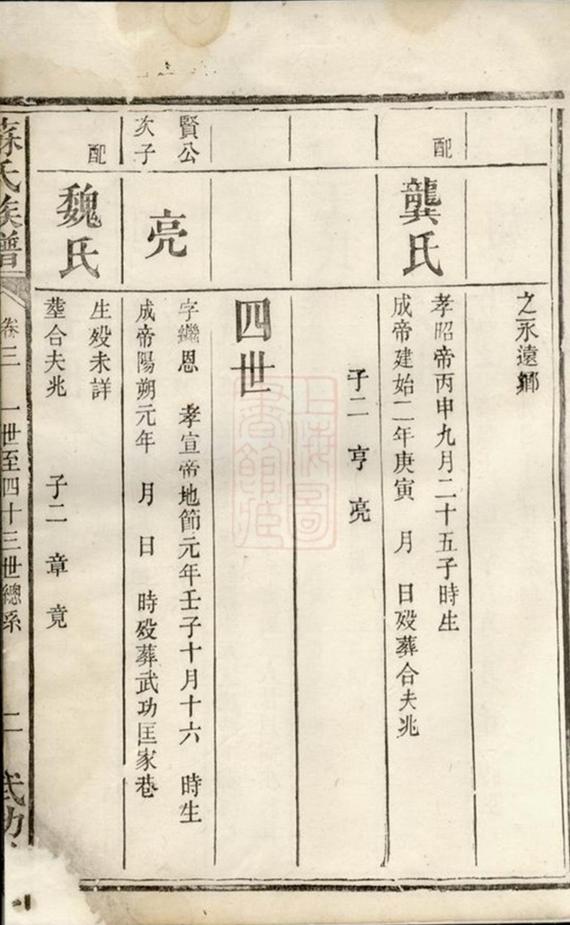 之永遠鄉
配
龔氏
孝昭帝丙申九月二十五子時生
成帝建始二年庚寅 月 日歿葬合夫兆
子二 亨 亮
四世
賢公
次子
亮
字繼恩 孝宣帝地節元年壬子十月十六 時生
成帝陽朔元年 月 日 時歿葬武功匡家巷
配
魏氏
生歿未詳
塟合夫兆 子二 章 竟
蘇氏族譜 卷三 一世至四十三世總系 二 武功
上海圖書館藏